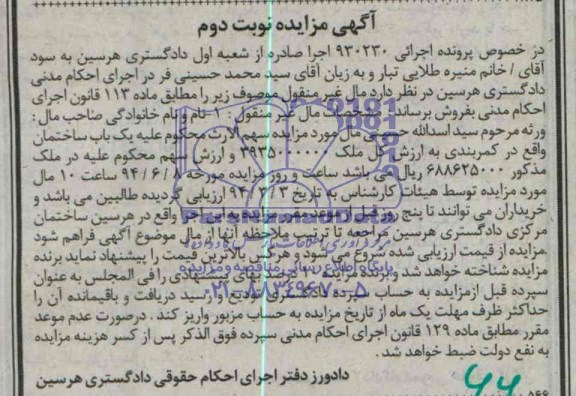 آگهی مزایده نوبت دوم
در خصوص پرونده اجرائی ۹۳۰۲۳۰ اجرا صادره از شعبه اول دادگستری هرسین به سود
آقای / خانم منیره طلایی تبار و به زیان آقای سید محمد حسینی فر در اجرای احکام مدنی
دادگستری هرسین در نظر دارد مال غیر منقول موصوف زیر را مطابق ماده ۱۱۳ قانون اجرای
احکام مدنی بفروش برساند ۱- مشخصات مال غیر منقول : ۱- نام و نام خانوادگی صاحب مال :
ورثه مرحوم سید اسدالله مال مورد مزایده سهم الارث محکوم علیه یک باب ساختمان
واقع در کمربندی به ارزش کل ملک ۳۹۳۵۰۰۰۰۰۰ و ارزش سهم محکوم علیه در ملک
مذکور ۶۸۸۶۲۵۰۰۰ ریال می باشد ساعت و روز مزایده مورخه ۹۴/۶/۸ ساعت ۱۰ مال
مورد مزایده توسط هیئات کارشناس به تاریخ ۹۴/۳/۳ ارزیابی گردیده طالبین می باشد و
خریداران می توانند تا پنج روز قبل از موعد مقرر مزایده به این اجرا واقع در هرسین ساختمان
مرکزی دادگستری هرسین مراجعه تا ترتیب ملاحظه آنها از مال موضوع آگهی فراهم شود
.مزایده از قیمت ارزیابی شده شروع می شود و هرکس بالاترین قیمت را پیشنهاد نماید برنده
مزایده شناخته خواهد شد و برنده مزایده درصد پیشنهادی را فی المجلس به عنوان
سپرده قبل ازمزایده به حساب سپرده دادگستری تودیع و ارسید دریافت و باقیمانده آن را
حداکثر ظرف مهلت یک ماه از تاریخ مزایده به حساب مزبور واریز کند . درصورت عدم موعد
مقرر مطابق ماده ۱۲۹ قانون اجرای احکام مدنی سپرده فوق الذکر پس از کسر هزینه مزایده
به نفع دولت ضبط خواهد شد .
دادورز دفتر اجرای احکام حقوقی دادگستری هرسین
پایگاه اطلاع رسانی مناقصه و مزایده
۰۲۱-۸۸۳۴۹۶۷۰-۵
۴۴